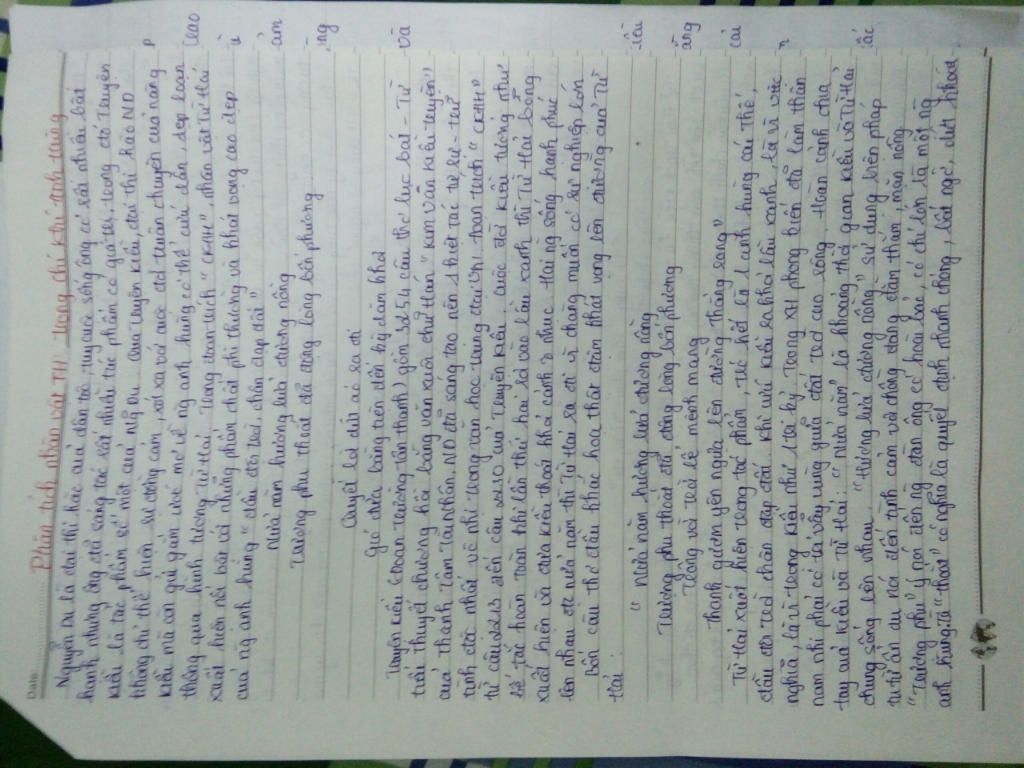 Date
Phân tích nhân vật TH trong chí khí anh hùng
Nguyễn Du là đại thi hào của dân tộc, tuy cuộc sống ông có rất nhiều bất
hạnh nhưng ông đã sáng tác rất nhiều tác phẩm có giá trị, trong đó Truyện
Kiều là tác phẩm số một của Nguyễn Du. Qua Truyện Kiều, đại thi hào ND
không chỉ thể hiện sự đồng cảm, xót xa với cuộc đời truân chuyên của nàng
Kiều mà còn gửi gắm ước mơ về ng anh hùng có thể cứu dân, dẹp loạn
thông qua hình tượng Từ Hải. Trong đoạn trích "CKAH", nhân vật Từ Hải
xuất hiện nổi bật với những phẩm chất phi thường và khát vọng cao đẹp
của ng anh hùng "đầu đội trời, chân đạp đất"
Nửa năm hương lửa đương nồng
Trượng phu thoắt đã động lòng bốn phương
Quyết lời dứt áo ra đi
Gió đưa bằng tiện đến kỳ dặm khơi
Truyện Kiều (Đoạn Trường Tân Thanh) gồm 3254 câu thơ lục bát - Từ
tiểu thuyết chương hồi bằng văn xuôi chữ Hán "Kim Vân Kiều truyện"
của Thanh Tâm Tài Nhân. ND đã sáng tạo nên 1 kiệt tác tự sự - trữ
tình độc nhất vô nhị trong văn học trung đại VN. Đoạn trích "CKAH"
từ câu 2213 đến câu 2230 của Truyện Kiều, cuộc đời Kiều tưởng như
bế tắc hoàn toàn khi lần thứ hai rơi vào lầu xanh thì Từ Hải bỗng
xuất hiện và đưa Kiều thoát khỏi cảnh ô nhục. Hai ng sống hạnh phúc
bên nhau đc nửa năm thì Từ Hải ra đi vì chàng muốn có sự nghiệp lớn
Bốn câu thơ đầu khắc họa thật đậm khát vọng lên đường của Từ
Hải:
"Nửa năm hương lửa đương nồng
Trượng phu thoắt đã động lòng bốn phương
Trông vời trời bể mênh mang
Thanh gươm yên ngựa lên đường thẳng rong"
Từ Hải xuất hiện trong tác phẩm, trc hết là 1 anh hùng cái thế,
đầu đội trời chân đạp đất. Khi cứu Kiều ra khỏi lầu xanh, là vì việc
nghĩa, là vì trọng Kiều như 1 tri kỷ. Trong XH phong kiến đã làm thân
nam nhi phải có chí vẫy vùng giữa đất trời cao rộng. Hoàn cảnh chia
tay của Kiều và Từ Hải: "nửa năm" là khoảng thời gian Kiều và Từ Hải
chung sống bên nhau, "hương lửa đương nồng" sử dụng biện pháp
tu từ ẩn dụ nói đến tình cảm vợ chồng đang đằm thắm, mặn nồng
"Trượng phu" ý nói đến ng đàn ông có hoài bão, có chí lớn là một ng
anh hùng. Từ "thoắt" có nghĩa là quyết định nhanh chóng, bất ngờ, dứt khoát
p
cao
ù
am
ng
và
iều
ăng
cái
n
ắc